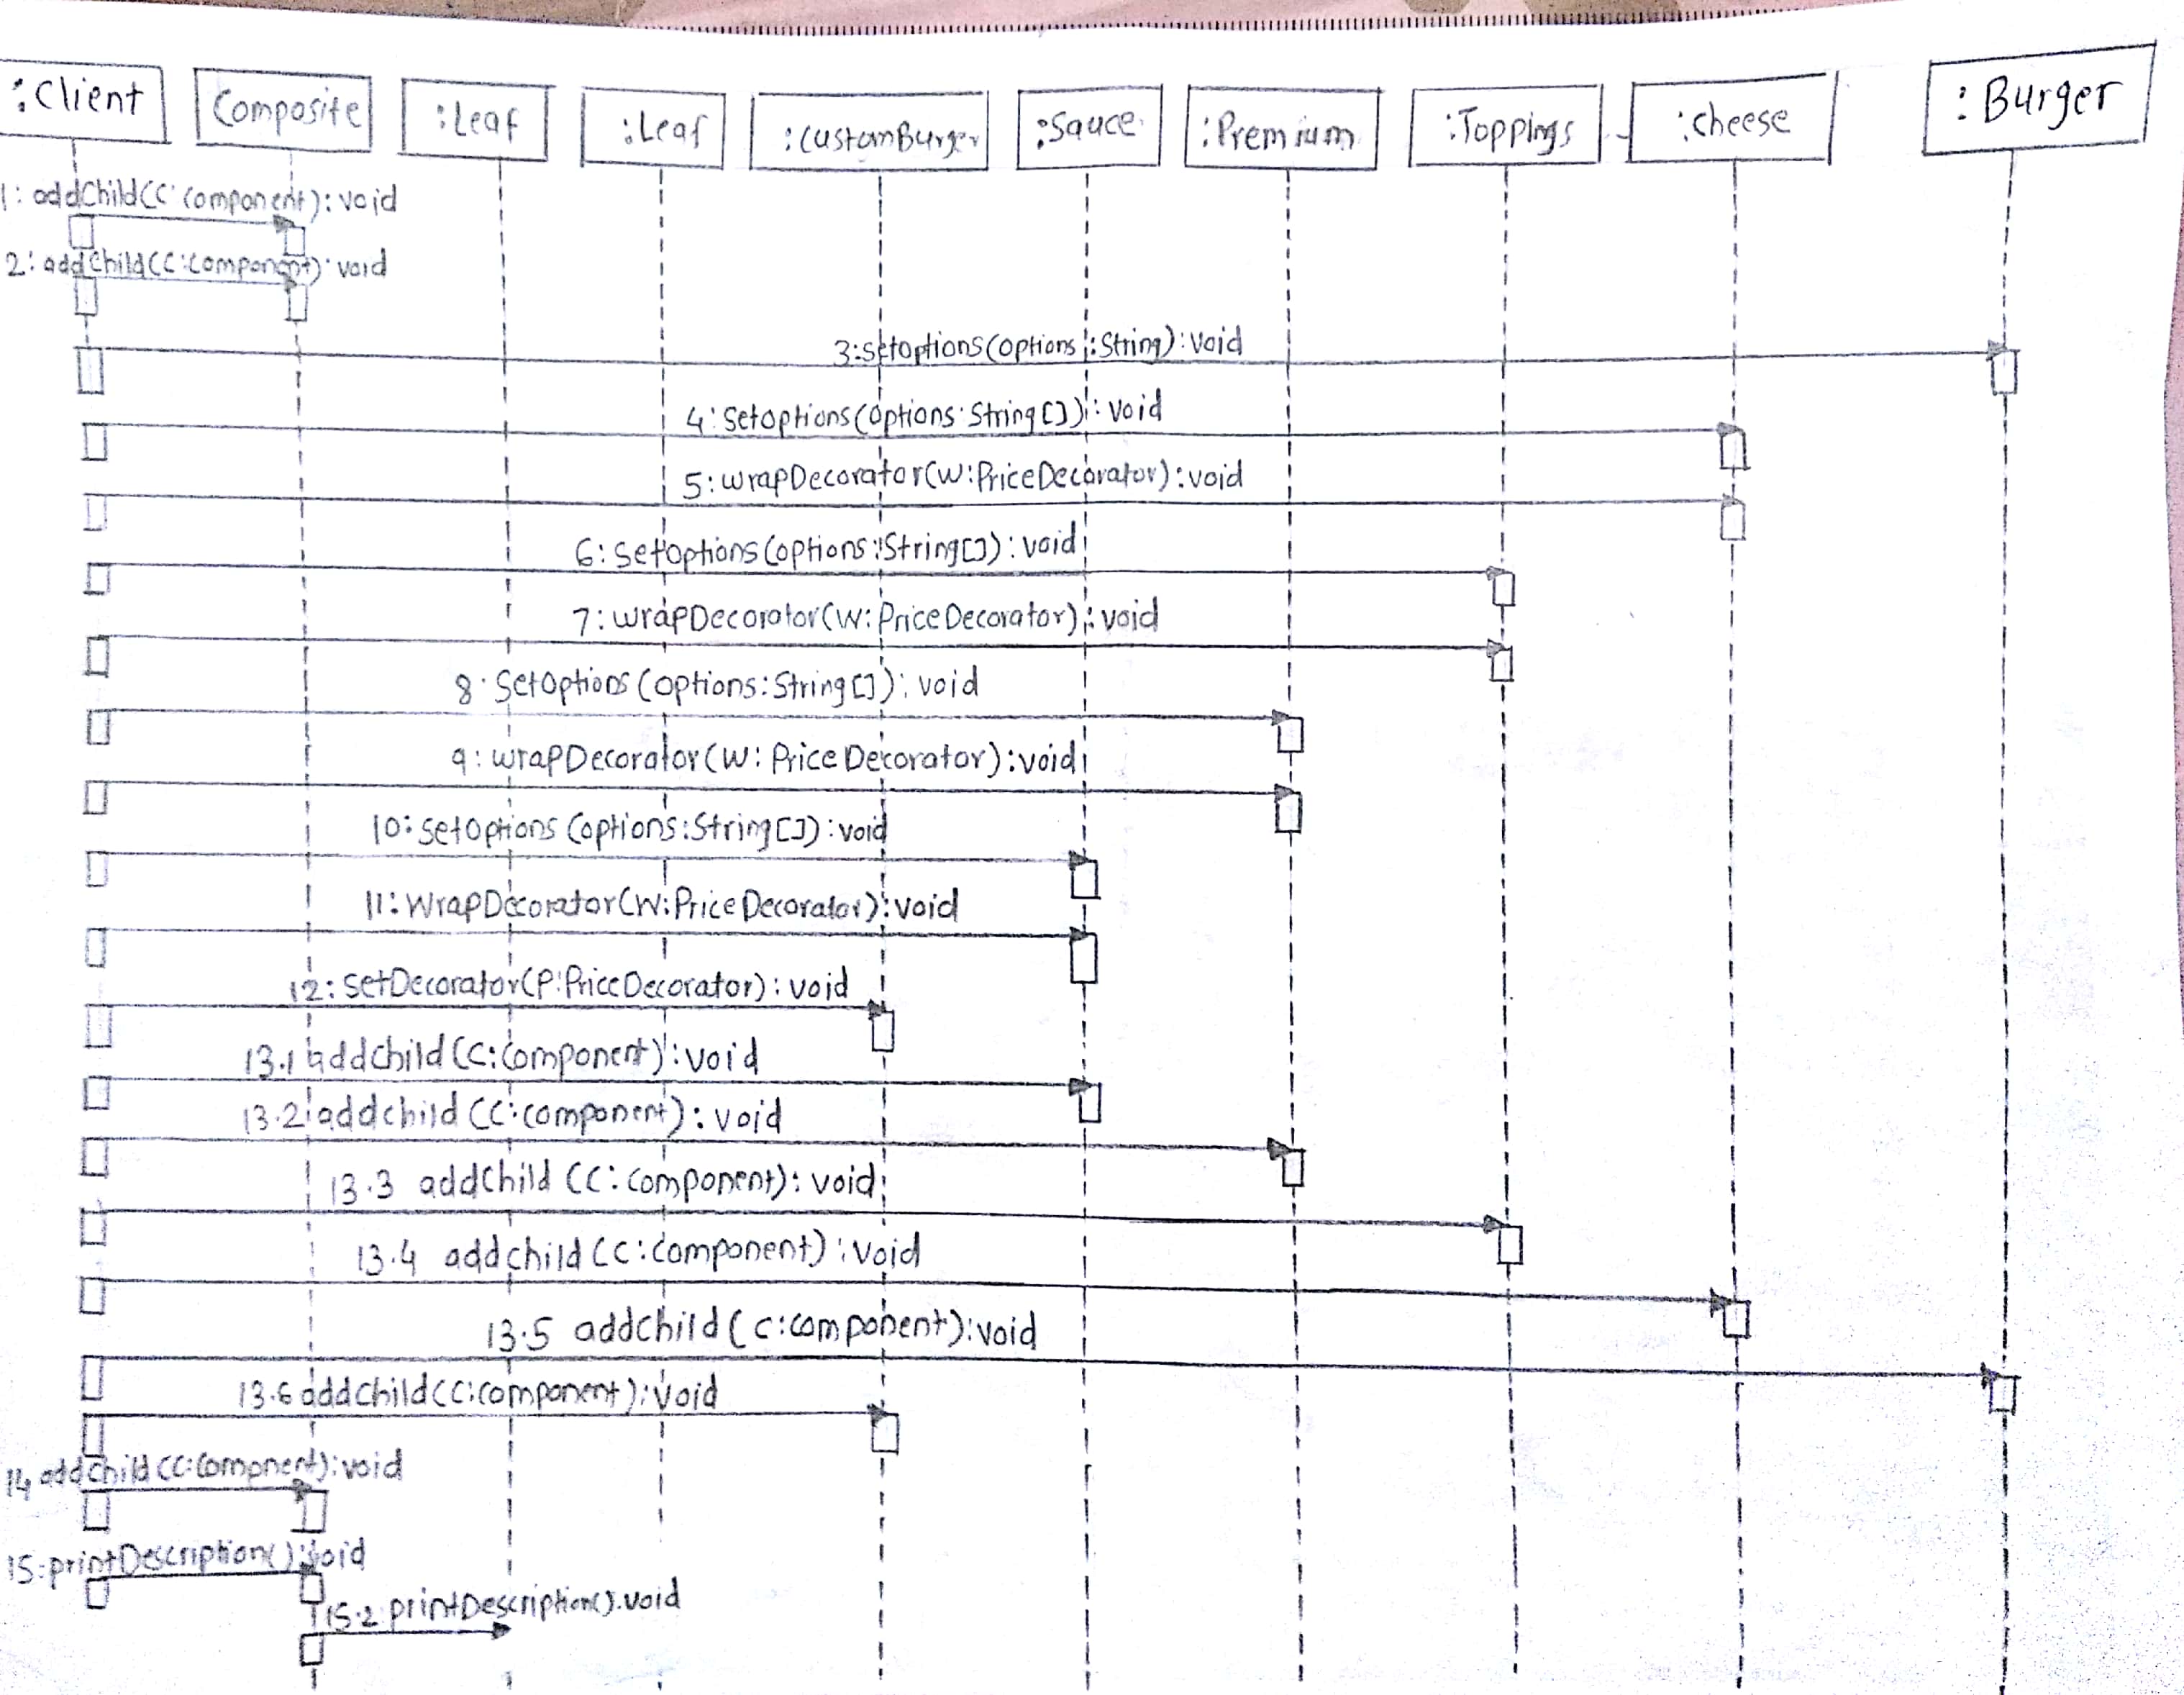 :Client
Composite
:Leaf
:Leaf
:CustomBurger
:Sauce
:Premium
:Toppings
:cheese
:Burger
1: addChild(C:Component): void
2: addChild(C:Component): void
3:setoptions(options:String):void
4:Setoptions(options:String[]): void
5:wrapDecorator(W:PriceDecorator):void
6: Setoptions(options:String[]): void
7:wrapDecorator(W:PriceDecorator): void
8:SetOptions(options:String[]): void
9: wrapDecorator(W: PriceDecorator):void
10:setOptions(options:String[]):void
11:WrapDecorator(W:PriceDecorator):void
12: setDecorator(P:PriceDecorator): void
13.1 addchild(C:Component):void
13.2 addchild(C:component): void
13.3 addChild(C:component): void
13.4 addchild(C:Component):void
13.5 addchild(c:component):void
13.6 addChild(C:component):void
14 addChild(C:Component):void
15:printDescription():void
15.2 printDescription().void